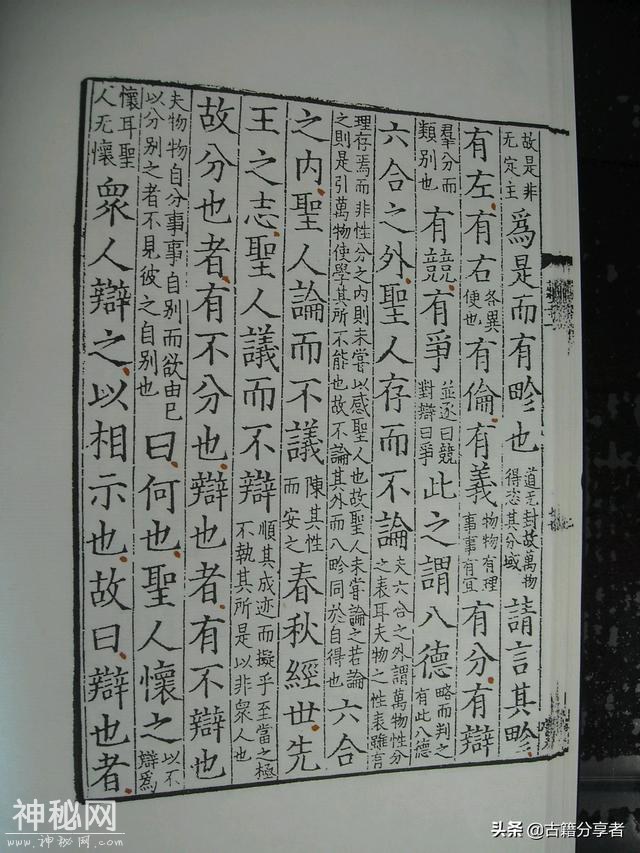 故是非无定主為是而有畛也道无封故萬物得恣其分域請言其畛
有左有右各異便也有倫有義物物有理事事有宜有分有辯
羣分而類別也有競有爭並逐曰競對辯曰爭此之謂八德略而判之有此八德
六合之外聖人存而不論夫六合之外謂萬物性分之表耳夫物之性表雖有
理存焉而非性分之内則未嘗以感聖人也故聖人未嘗論之若論之則是引萬物使學其所不能也故不論其外而八畛同於自得也六合
之内聖人論而不議陳其性而安之春秋經世先
王之志聖人議而不辯順其成迹而擬乎至當之極不執其所是以非衆人也
故分也者有不分也辯也者有不辯也
夫物物自分事事自別而欲由己以分別之者不見彼之自別也曰何也聖人懷之以不辯為
懷耳聖人无懷衆人辯之以相示也故曰辯也者
神秘网
www.神秘网.com
头条 @古籍分享者